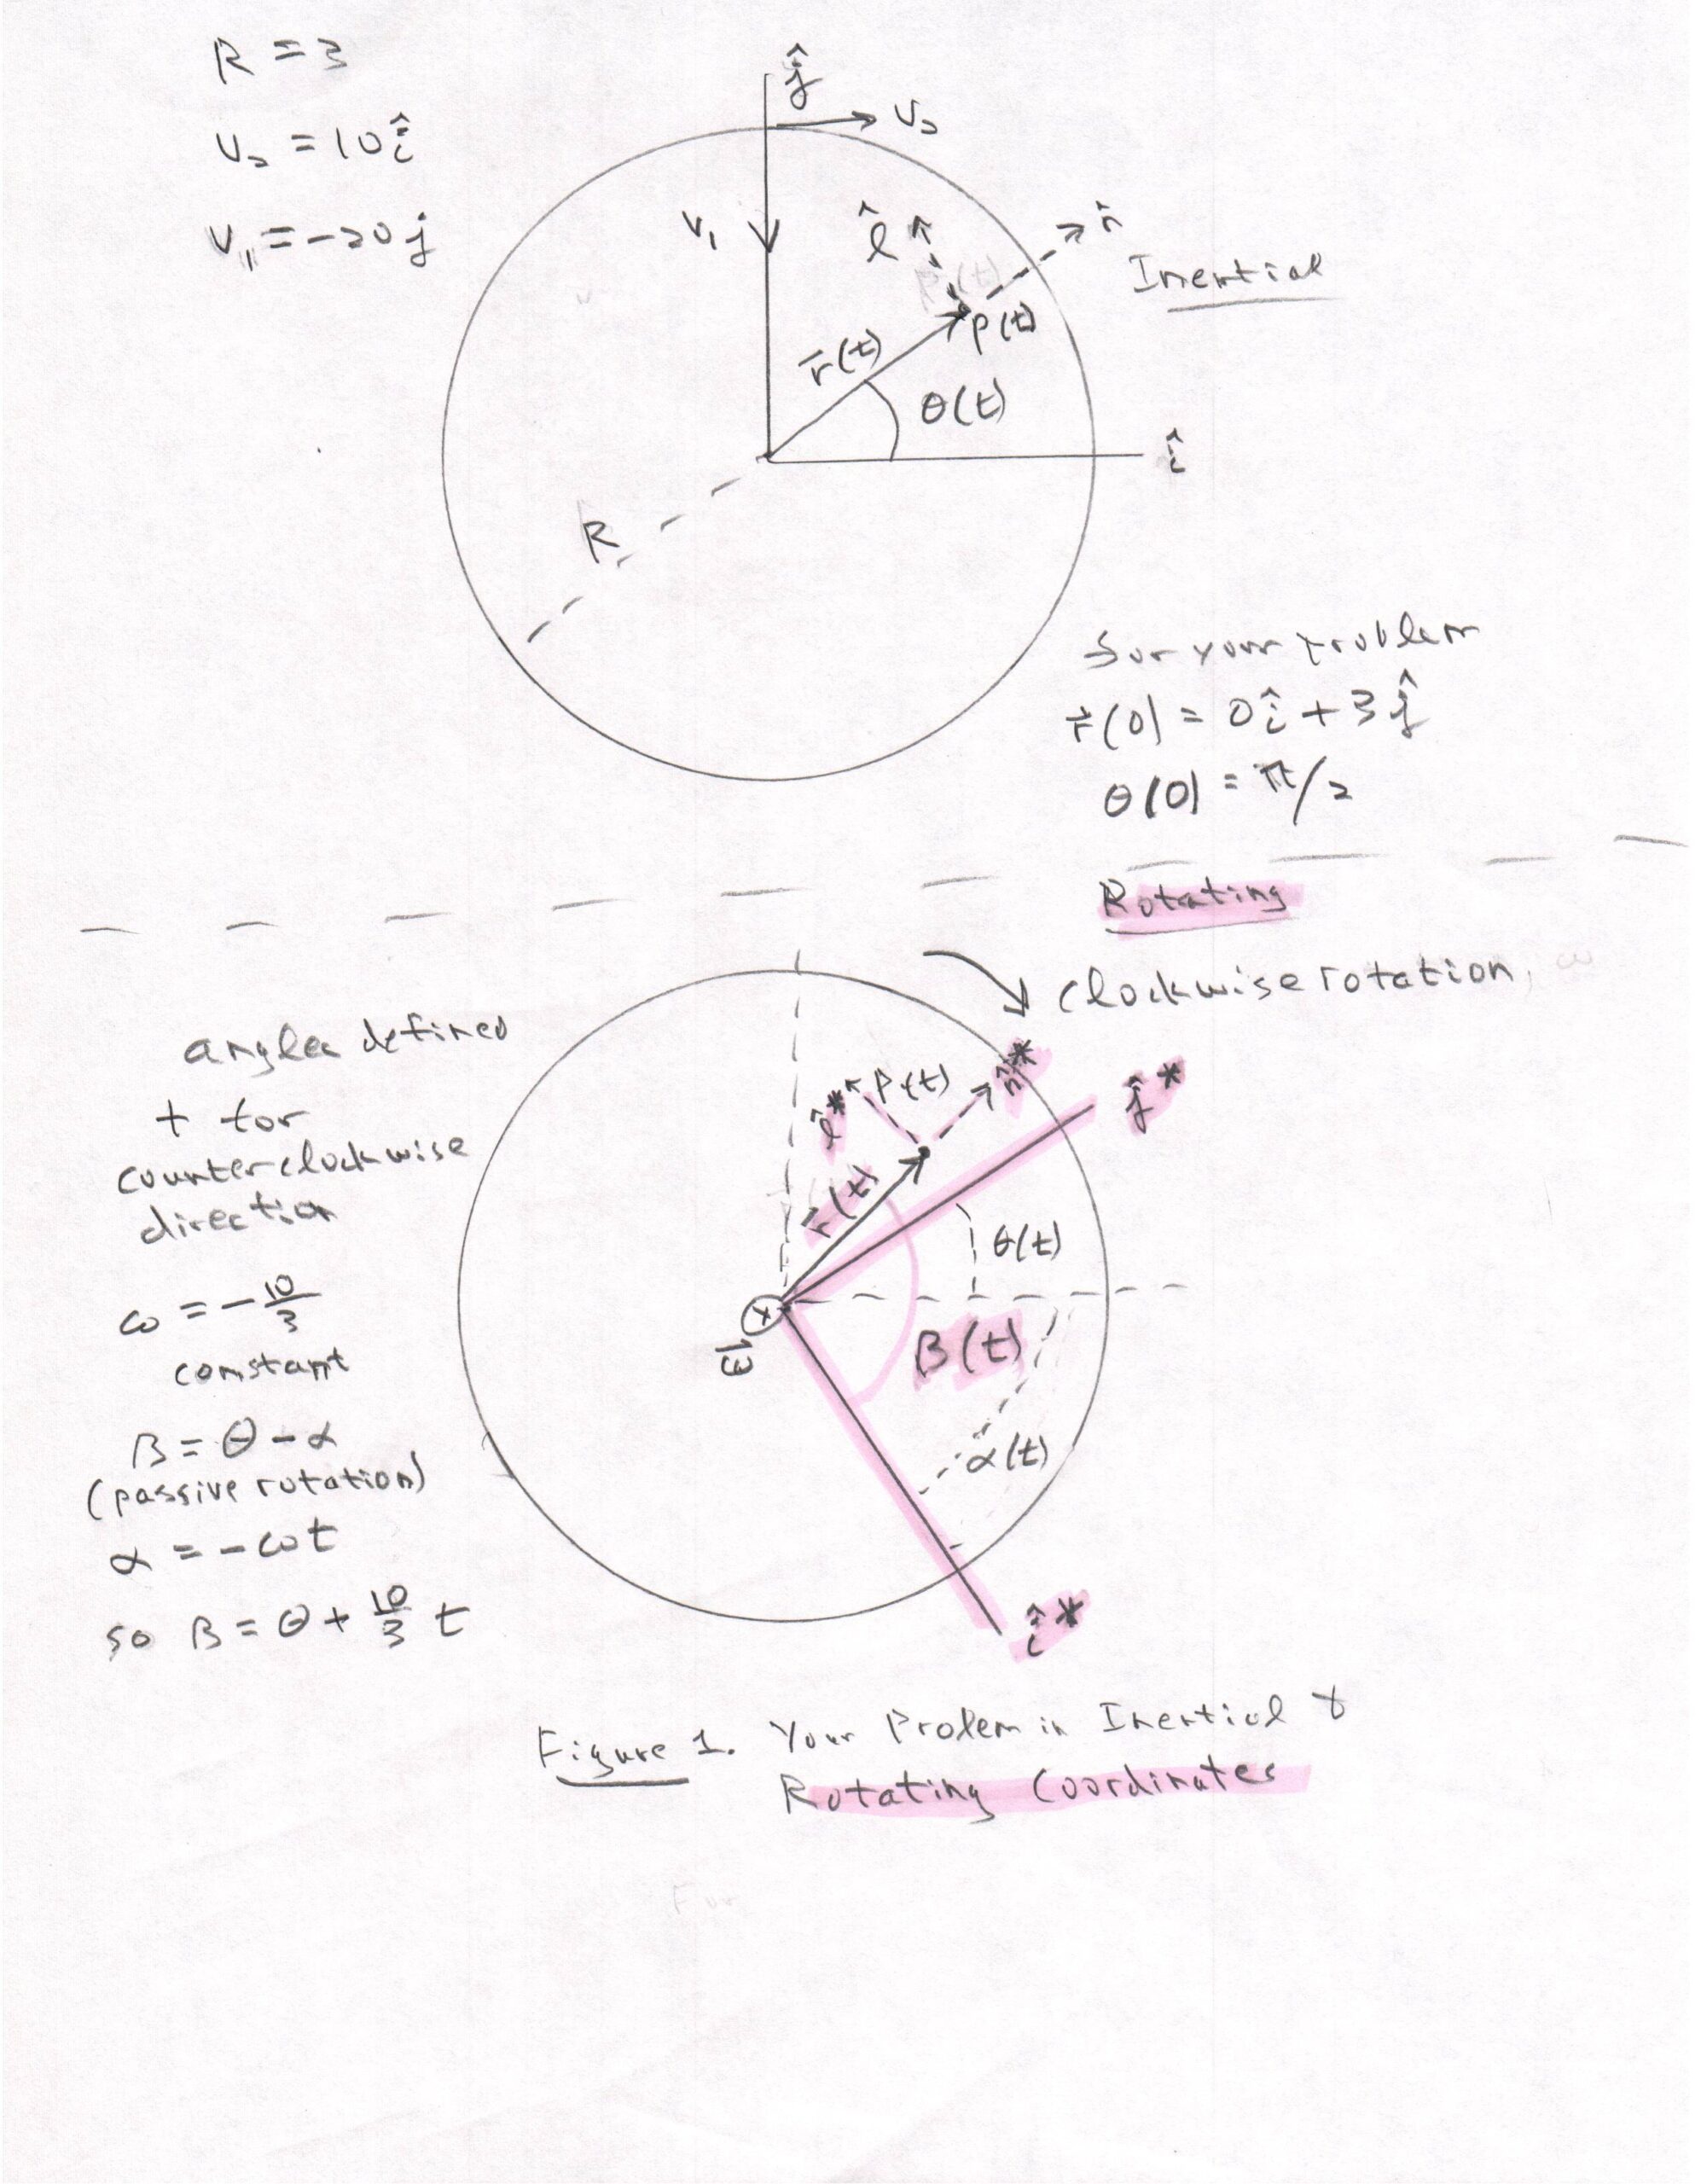 R = 3
V₂ = 10î
V₁ = -20j
ĵ
V₂
V₁
l̂
n̂
Inertial
p(t)
r̄(t)
θ(t)
î
R
for your problem
r̄(0) = 0î + 3ĵ
θ(0) = π/2
Rotating
clockwise rotation
angles defined
+ for
counterclockwise
direction
ω = -10/3
constant
β = θ - α
(passive rotation)
α = -ωt
so β = θ + 10/3 t
l̂*
p(t)
n̂*
ĵ*
r̄(t)
θ(t)
x
ω̄
β(t)
α(t)
î*
Figure 1. Your Prolem in Inertial &
Rotating Coordinates